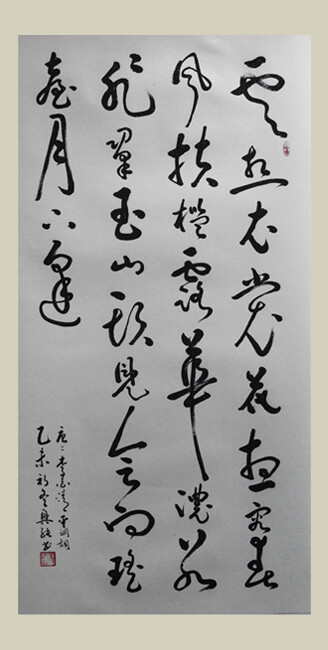 雲想衣裳花想容春
風拂檻露華濃若
非羣玉山頭見會向瑤
臺月下逢
李白清平調詞
乙未初冬